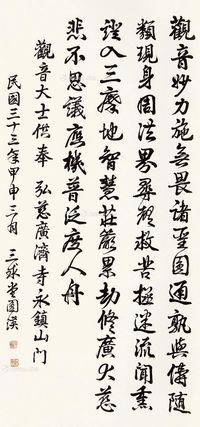 觀音妙力施無畏諸聖圓通孰與儔隨
類現身周法界尋聲救苦極迷流聞熏
證入三摩地智慧莊嚴累劫修廣大慈
悲不思議應機普泛度人舟
觀音大士供奉 弘慈廣濟寺永鎮山門
民國三十三年甲申二月